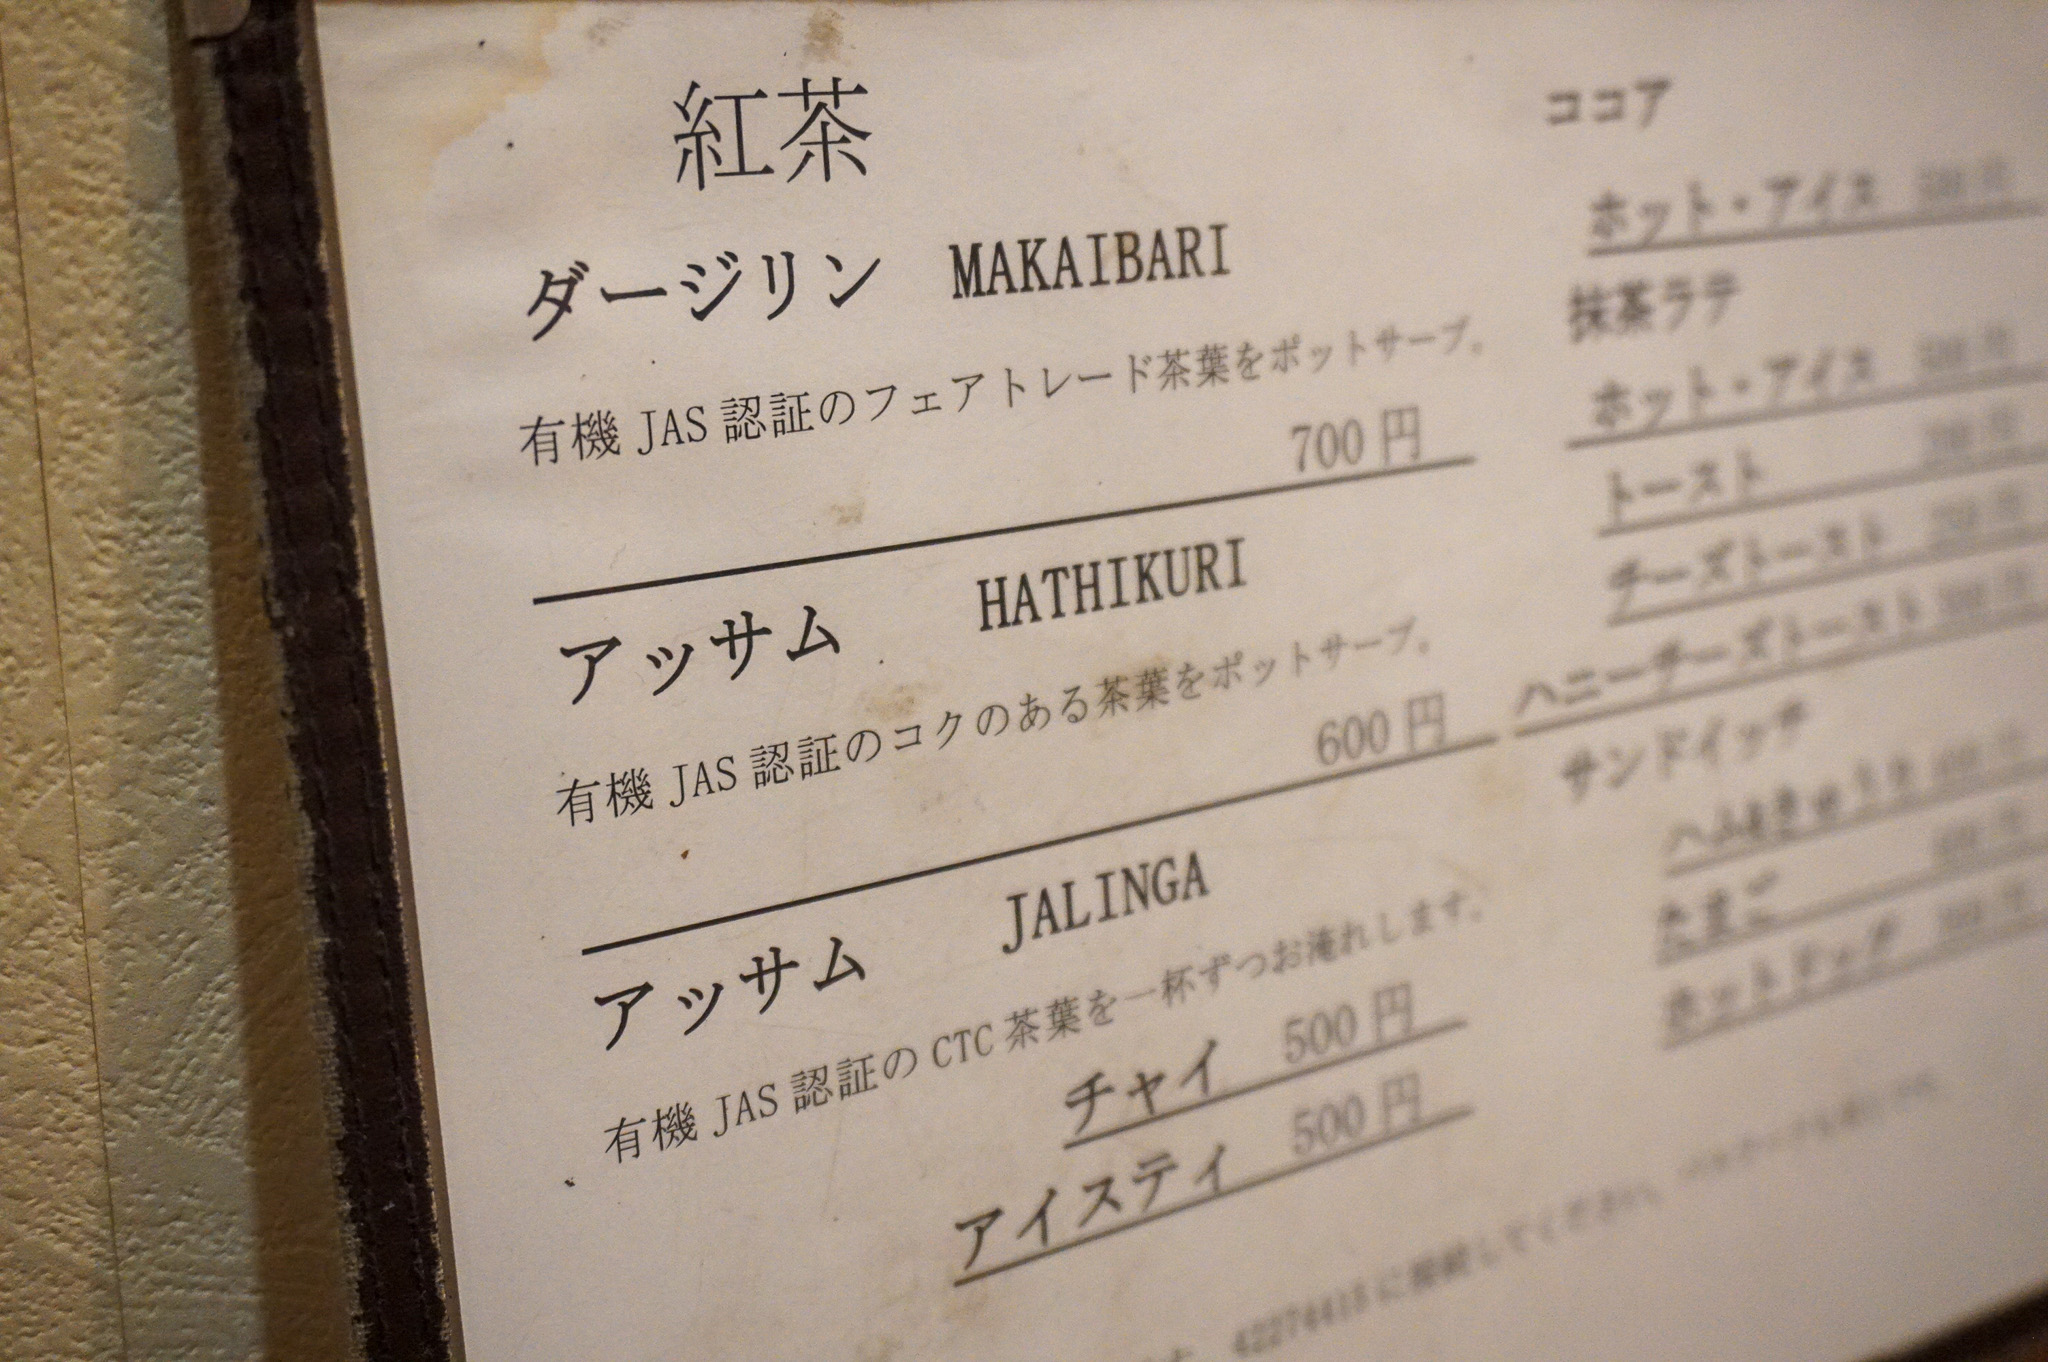 紅茶
ダージリン MAKAIBARI
有機 JAS 認証のフェアトレード茶葉をポットサーブ。
700 円
アッサム HATHIKURI
有機 JAS 認証のコクのある茶葉をポットサーブ。
600 円
アッサム JALINGA
有機 JAS 認証の CTC 茶葉を一杯ずつお淹れします。
チャイ 500 円
アイスティ 500 円
ココア
ホット・アイス
抹茶ラテ
ホット・アイス
トースト
チーズトースト
ハニーチーズトースト
サンドイッチ
ハム&きゅうり
たまご
ホットドッグ
に接続してください。